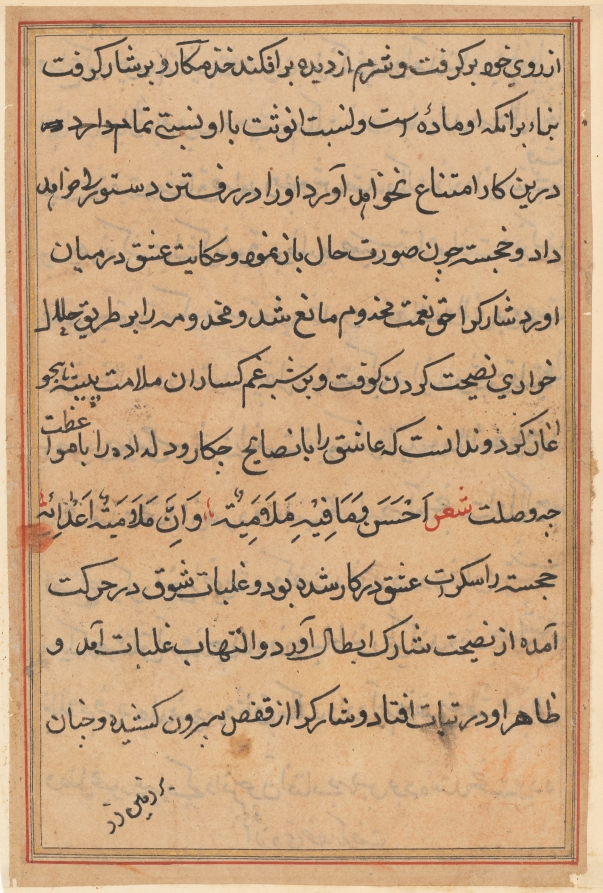 از روی خود برکرفت و شرم از دیده برافکند خنده مکار و بر شارک رفت
بناء برانکه او مادهٔ است و نسبت انوثت با او نسبتی تمام دارد
درین کار امتناع نخواهد آورد او را در رفتن دستوری خواهد
داد و خجسته چون صورت حال باز نمود و حکایت عشق درمیان
اورد شارک را حق نعمت مخدوم مانع شد و مخدومه را بر طریق حلال
خواری نصیحت کردن کرفت و بر شبه غم کساران ملامت
اغاز کرد و ندانست که عاشق را با نصایح جکار و دلداده را با مواعظت
چه وصلت شعر اَحْسَنَ وَمَا فِیْهِ مَلَامِیَتَه وَاِنَّ مَلَامِیَتَه اَعْدَائِه
خجسته را سکرت عشق در کار شده بود و غلبات شوق در حرکت
آمده از نصیحت شارک ابطال آورد و التهاب غلبات آمد و
ظاهر او در تبات افتاد و شارک را از قفص بیرون کشیده و چنان
بر زمین زد